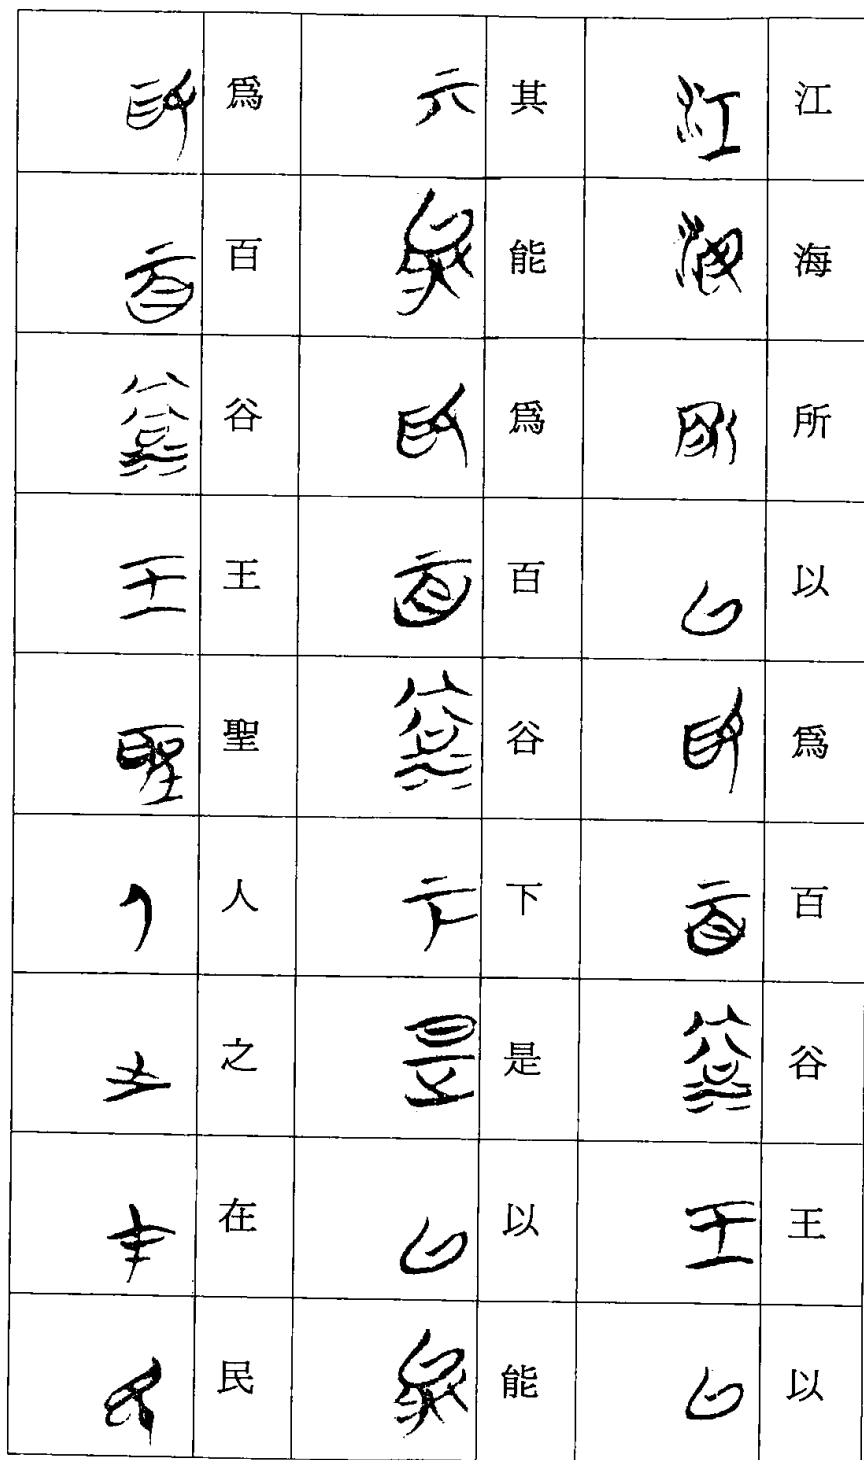 江海所以爲百谷王以
其能爲百谷下是以能
爲百谷王聖人之在民